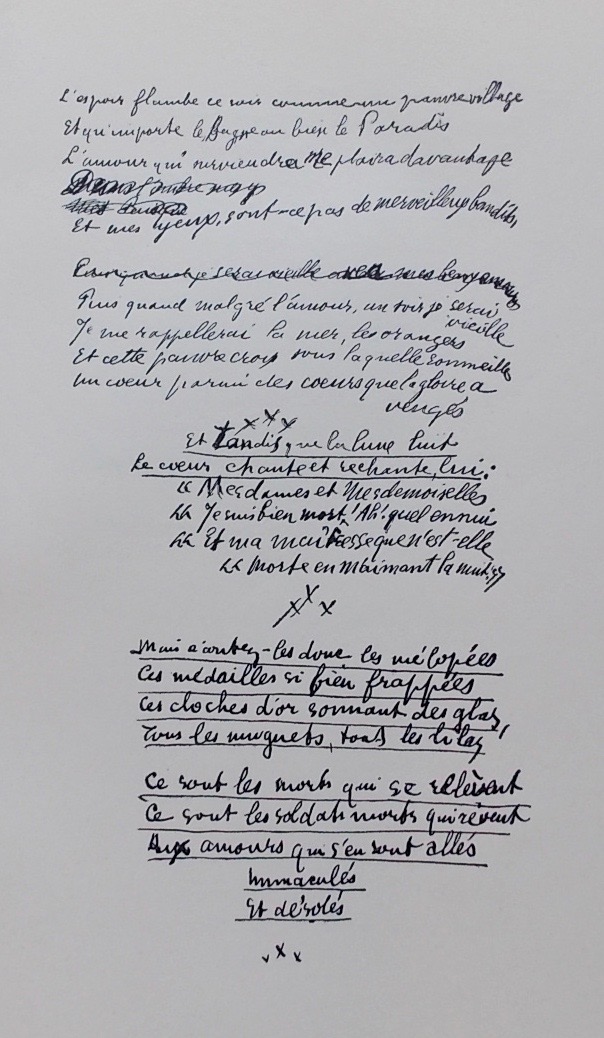 L'espoir flambe ce soir comme un pauvre village
Et qu'importe le Bagne ou bien le Paradis
L'amour qui surviendra me plaira davantage
Et mes yeux, sont-ce pas de merveilleux bandits
Puis quand malgré l'amour, un soir je serai
vieille
Je me rappellerai la mer, les orangers
Et cette pauvre croix sous laquelle sommeille
Un coeur parmi des coeurs que la gloire a
vengés
x x x
Et tandis que la lune luit
Le coeur chante et rechante, lui :
"Mesdames et Mesdemoiselles
"Je suis bien mort, Ah! quel ennui
"Et ma maîtresse que n'est-elle
"Morte en m'aimant la nuit"
x x x
Mais écoutez-les donc les mélopées
Ces médailles si bien frappées
Ces cloches d'or sonnant des glas,
Tous les muguets, tous les lilas
Ce sont les morts qui se relèvent
Ce sont les soldats morts qui rêvent
Aux amours qui s'en sont allés
Immaculés
Et désolés
x x x